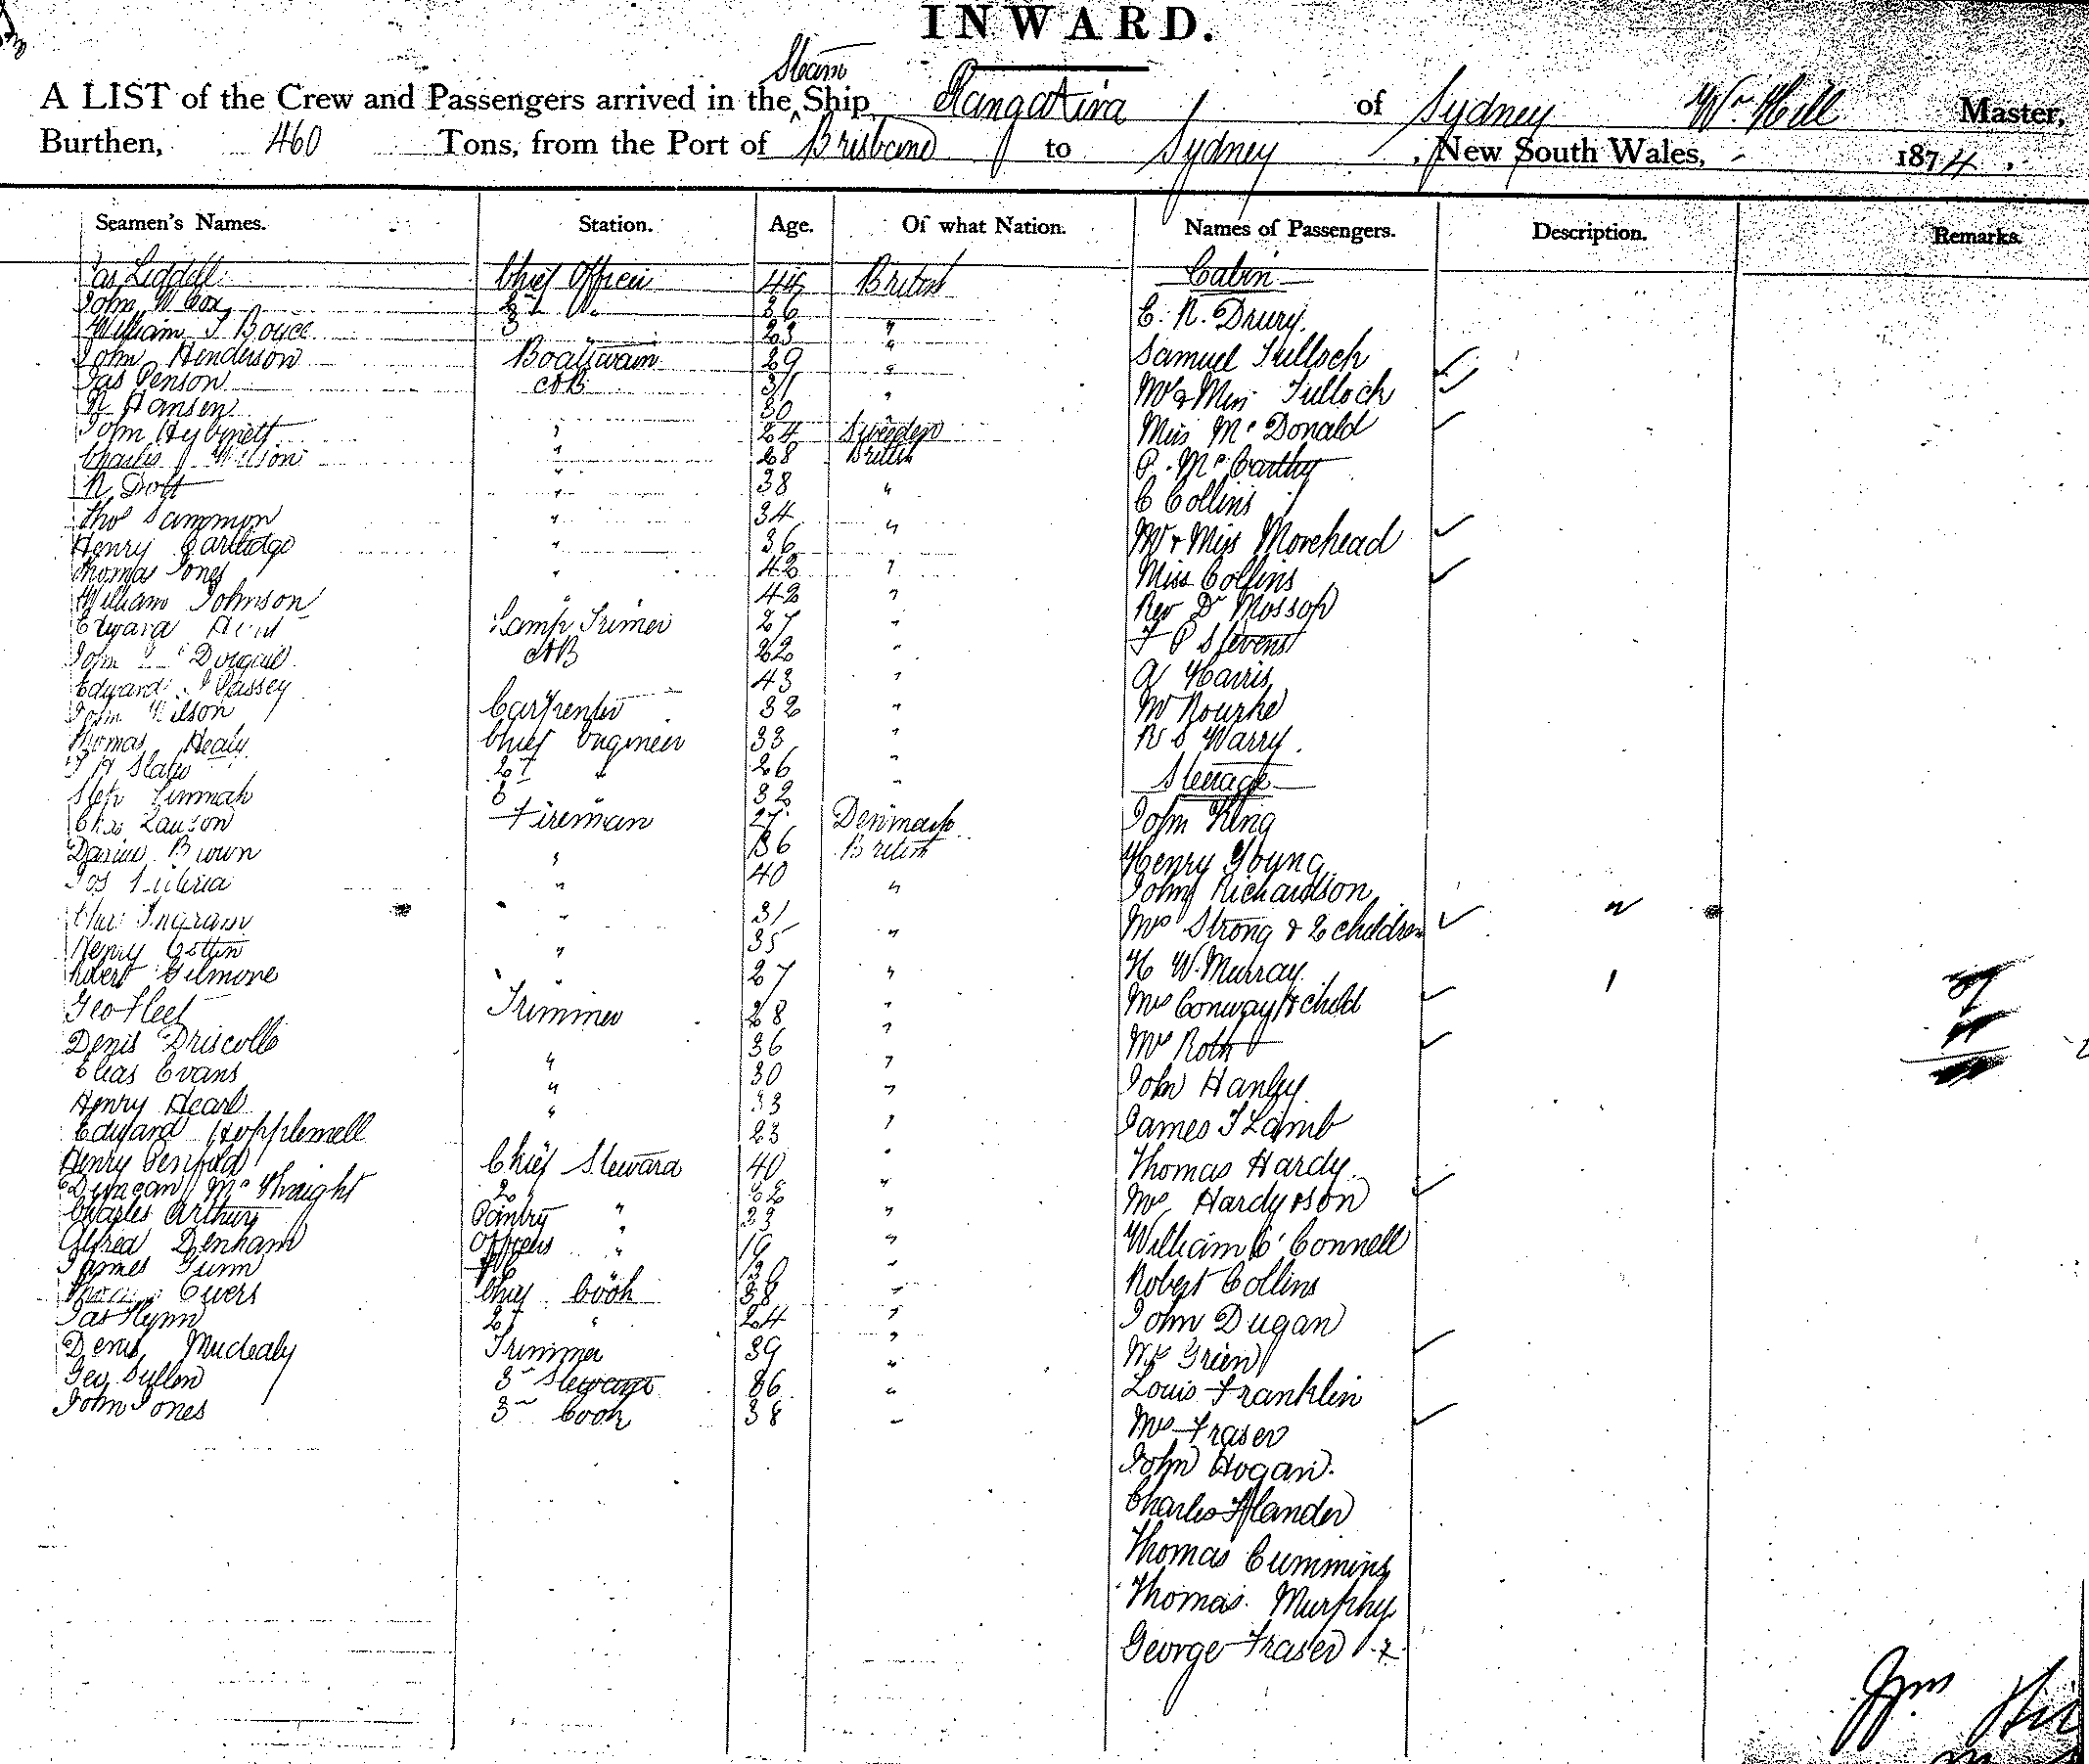 INWARD.
Steam
A LIST of the Crew and Passengers arrived in the ^ Ship Rangatira of Sydney Wm Hill Master,
Burthen, 460 Tons, from the Port of Brisbane to Sydney, New South Wales, 1874,
Seamen's Names. Station. Age. Of what Nation. Names of Passengers. Description. Remarks.
Jas Liddell Chief Officer 44 British Cabin
John W Cox 2 36
William J Boyce 3 23 " E. R. Drury
John Henderson Boatswain 29 " Samuel Tulloch
Jas Penson AB 31 " Mr & Miss Tulloch
R Hansen 30
John " 24 Sweden Miss McDonald
Charles Wilson " 28 British P. McCarthy
R " 38 " C Collins
Thos Sammon " 34 " Mr & Miss Morehead
Henry Cartledge " 36
Thomas Jones " 42 " Miss Collins
William Johnson " 42 " Rev Dr Mossop
Edward Lamp Trimer 27 " F P Stevens
John AB 22 "
Edward Passey " 43 " A Harris
John Wilson Carpenter 32 " M Rourke
Thomas Healy Chief Engineer 33 " R S Warry
2 " 26 " Steerage
3 " 32 "
Lauson Fireman 27 Denmark John King
Brown " 36 British Henry Young
Jos " 40 " John Richardson
Chas Ingram " 31 Mrs Strong & 2 children
Henry Cottin " 35 "
Robert Gilmore " 27 " H W. Murray
Geo Fleet Trimmer 28 " Mrs Conway & child
Denis Driscoll " 36 " Mrs Roth
Elias Evans " 30 " John Hanley
Henry Heard " 33 "
Edward Hopplemell 23 " James J Lamb
Henry Penfold Chief Steward 40 " Thomas Hardy
Duncan McKnaight 2 " 32 " Mrs Hardy & son
Charles Arthur Pantry " 23 "
Alfred Denham Officers " 19 " William O'Connell
James Gunn " "
Ewers Chief Cook 38 " Robert Collins
Jas Flynn 2 " 24 " John Dugan
Denis Mucleahy Trimmer 39 " Mrs Green
Geo Sullen 3 Steward 36 " Louis Franklin
John Jones 3 Cook 38 " Mrs Fraser
John Hogan.
Charles
Thomas Cummins
Thomas Murphy
George Fraser
Wm